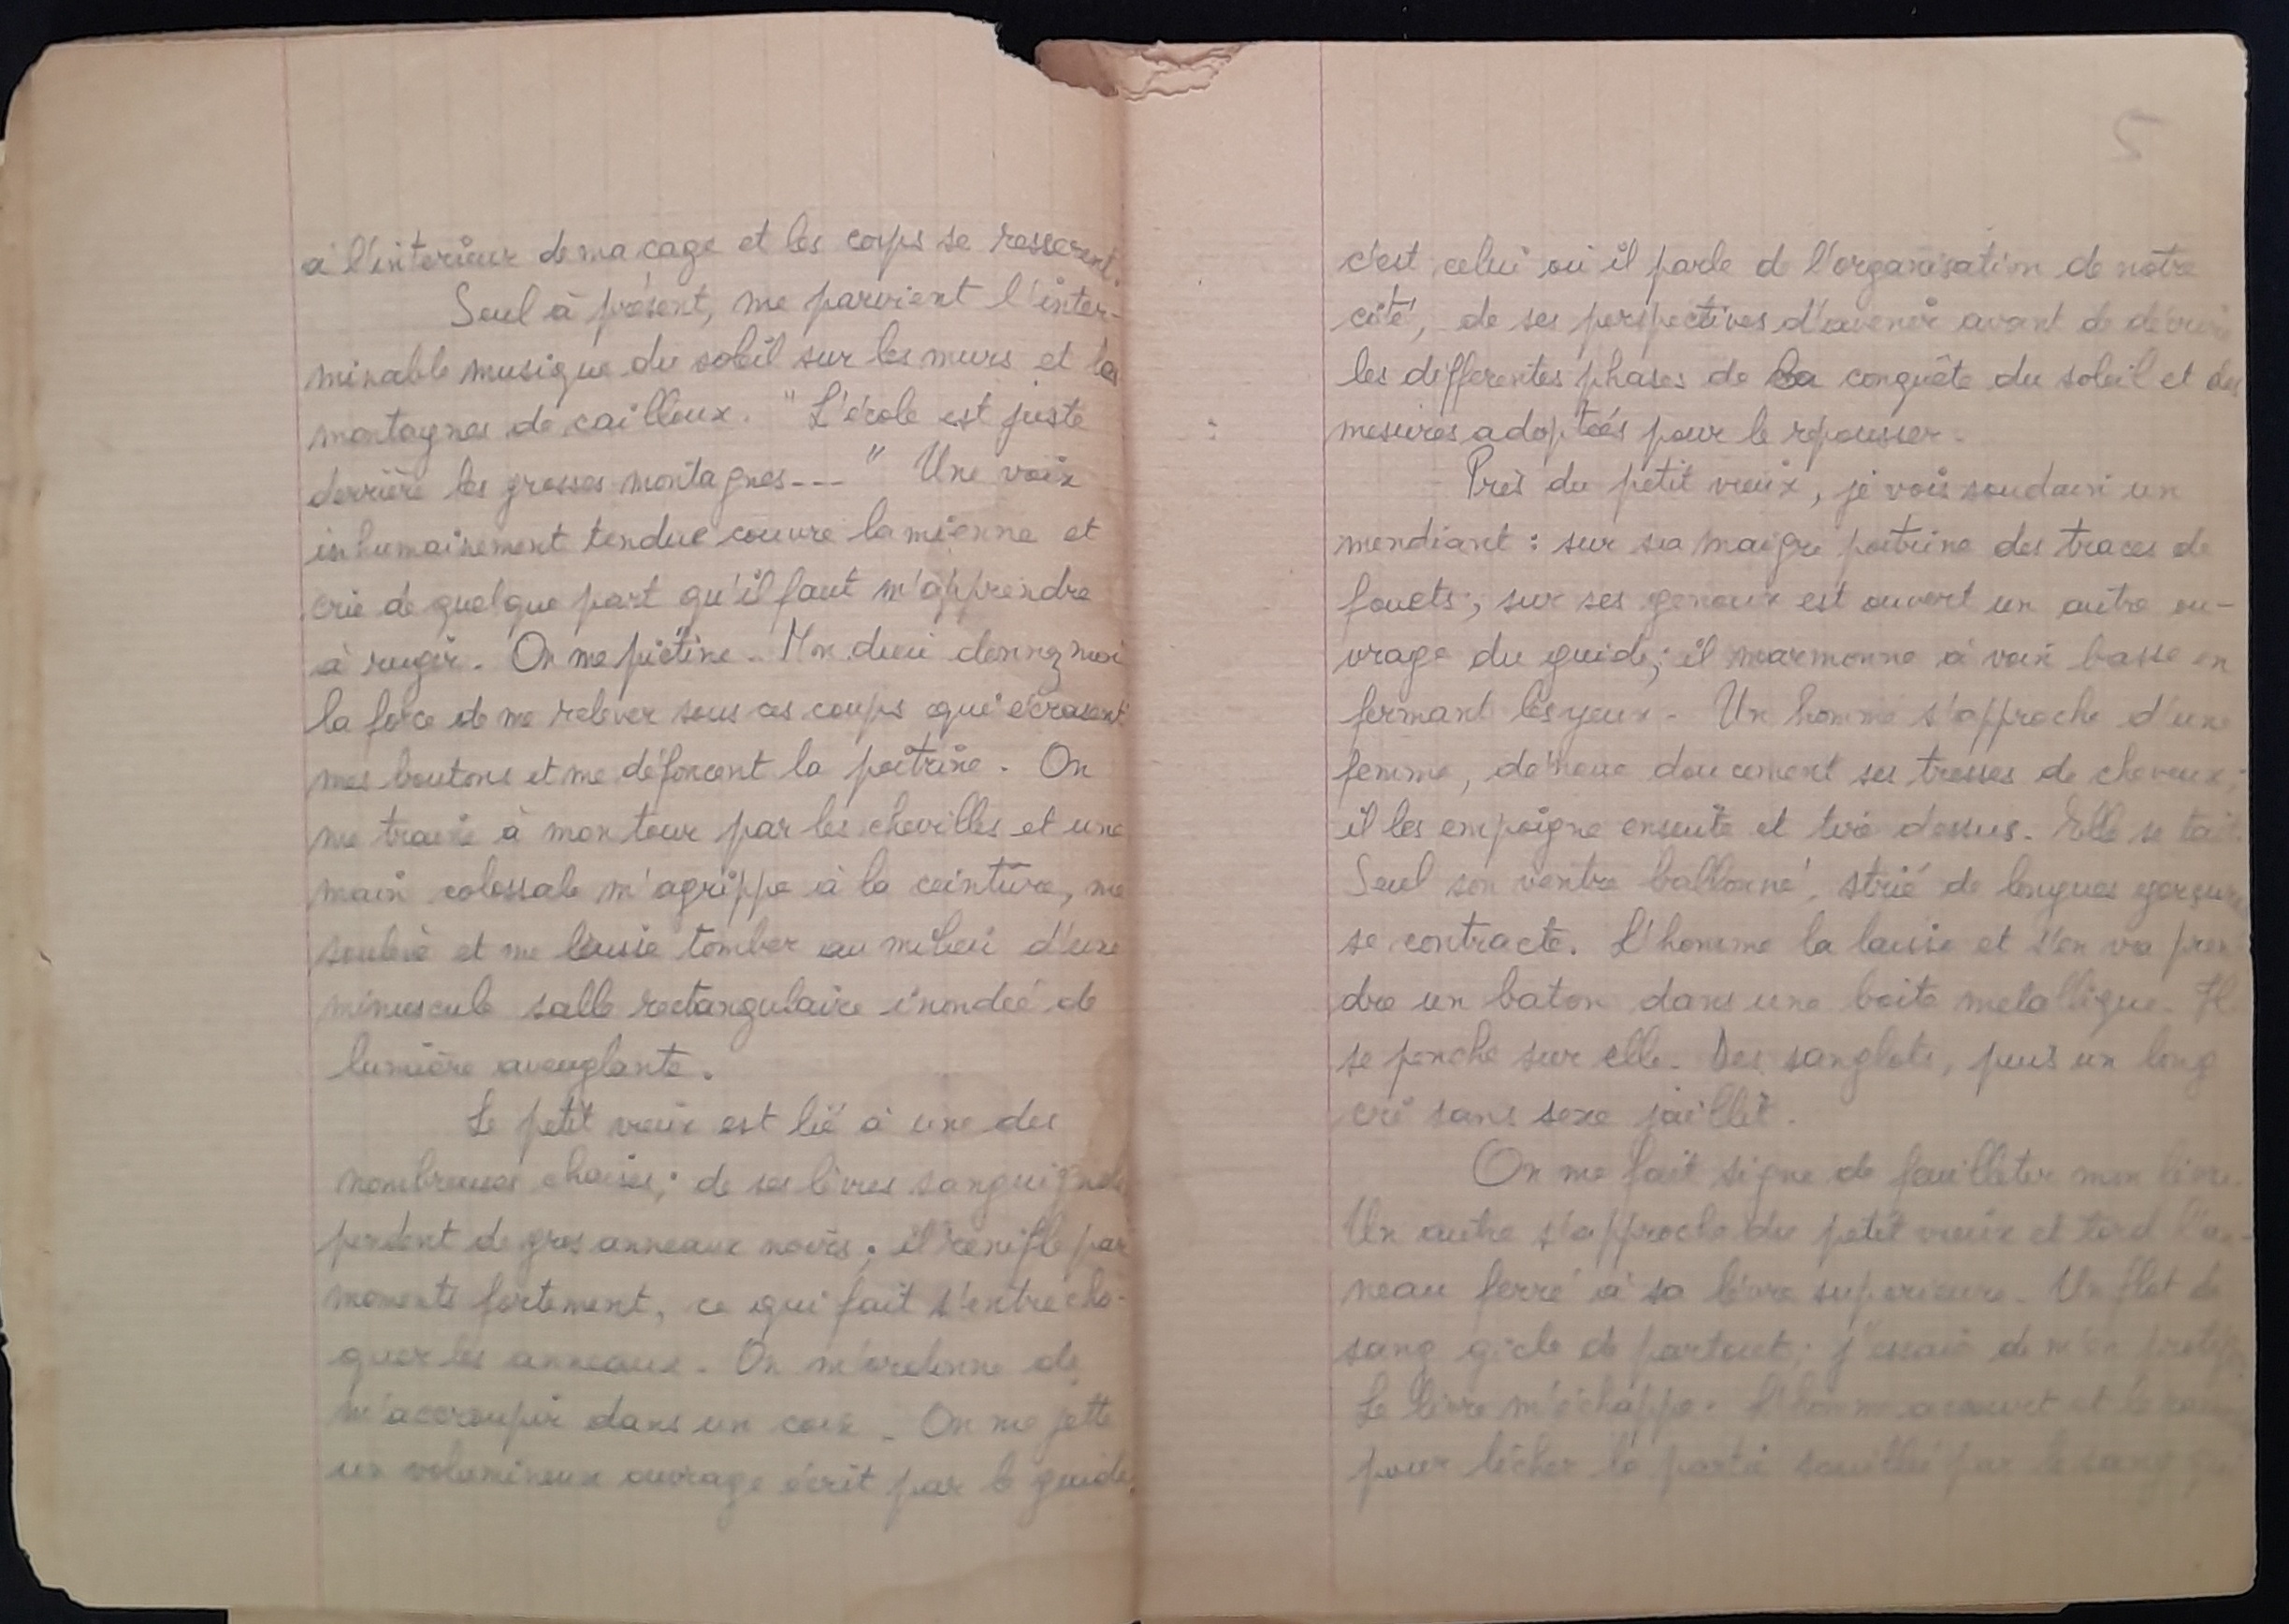 à l'interieur de ma cage et les corps se resserent.
Seul à présent, me parvient l'inter-
minable musique du soleil sur les murs et les
montagnes de cailloux. "L'école est juste
derrière les grosses montagnes---" Une voix
inhumainement tendue couvre la mienne et
crie de quelque part qu'il faut m'apprendre
à rugir. On me piétine. Mon dieu donnez moi
la force de me relever sous ces coups qui écrasent
mes boutons et me défoncent la poitrine. On
me traine à mon tour par les chevilles et une
main colossale m'agrippe à la ceinture, me
soulève et me laisse tomber au milieu d'une
minuscule salle rectangulaire inondée de
lumière aveuglante.
Le petit vieux est lié à une des
nombreuses chaises; de ses lèvres
pendent de gros anneaux noirs; il renifle par
moments fortement, ce qui fait s'entrecho-
quer les anneaux. On m'ordonne de
m'accroupir dans un coin. On me jette
un volumineux ouvrage écrit par le guide,
5
c'est celui où il parle de l'organisation de notre
cité, de ses perspectives d'avenir avant de
les differentes phases de la conquête du soleil et des
mesures adoptées pour le repousser.
Près du petit vieux, je vois soudain un
mendiant: sur sa maigre poitrine des traces de
fouets; sur ses genoux est ouvert un autre ou-
vrage du guide; il marmonne à voix basse en
fermant les yeux. Un homme s'approche d'une
femme, dénoue doucement ses tresses de cheveux;
il les empoigne ensuite et tire dessus. Elle se tait.
Seul son ventre ballonné, strié de longues gerçures
se contracte. L'homme la laisse et s'en va pren
dre un baton dans une boite metallique. Il
se penche sur elle. Des sanglots, puis un long
cri sans sexe jaillit.
On me fait signe de feuilleter mon livre.
Un autre s'approche du petit vieux et tord l'an-
neau ferré à sa lèvre superieure. Un flot de
sang gicle de partout; j'essaie de m'en
Le livre m'échappe. L'homme accourt et le
pour lècher la partie souillée par le sang